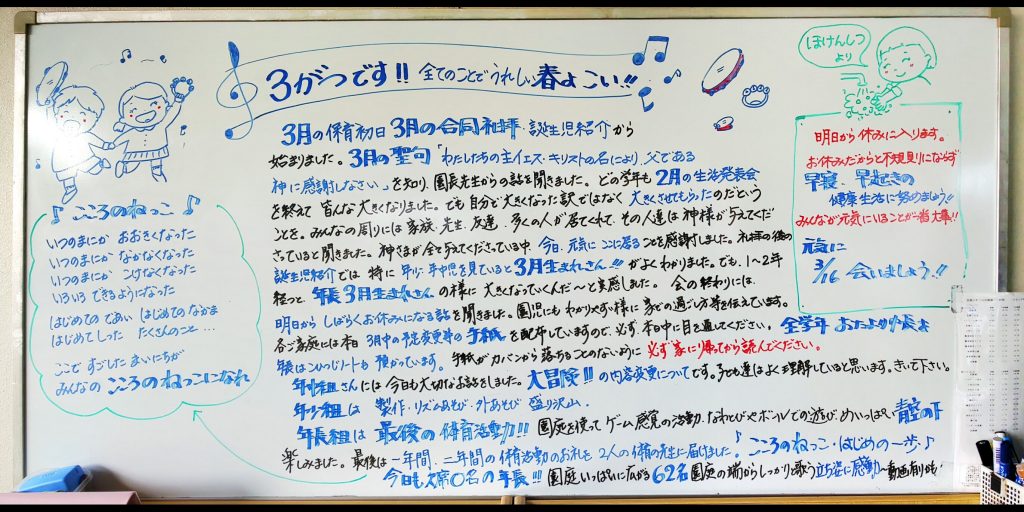 3がつです!! 全てのことでうれしい春よこい!!
ほけんしつ
より
3月の保育初日 3月の合同礼拝・誕生児紹介から
始まりました。3月の聖句「わたしたちの主イエス・キリストの名により、父である
神に感謝しなさい」を知り、園長先生からの話を聞きました。どの学年も2月の生活発表会
を終えて 皆んな大きくなりました。でも自分で大きくなった訳ではなく大きくさせてもらったのだという
ことを。みんなの周りには家族、先生、友達、多くの人が居てくれて、その人達は神様が与えてくだ
さっていると聞きました。神さまが全て与えてくださっている中、今日、元気に ここに居ることを感謝しました。礼拝の後の
誕生児紹介では 特に 年少・年中児を見ていると3月生まれさん!!! がよくわかりました。でも、1〜2年
経つと 年長3月生まれさんの様に 大きくなっていくんだ〜と実感しました。 会の終わりには、
明日から しばらくお休みになる話を聞きました。園児にも わかりやすい様に 家での過ごし方等を伝えています。
各ご家庭には本日 3月中の予定変更等の手紙を配布していますので、必ず、本日中に目を通してください。 全学年 おたより帳と
年長はひつじノートも 預かっています。 手紙がカバンから落ちることのないように 必ず家に帰ってから読んでください。
さんには 今日も大切なお話をしました。大冒険!! の内容変更についてです。子ども達はよく理解していると思います。きいて下さい。
年少組は 製作・リズムあそび・外あそび 盛り沢山。
年長組は 最後の体育活動!!! 園庭を使って ゲーム感覚の活動、なわとびやボールでの遊び めいっぱい 青空の下
楽しみました。最後は 一年間、二年間の体育活動のお礼を 2人の体育の先生に届けました。♪こころのねっこ・はじめの一歩♪
今日も欠席0名の年長!!! 園庭いっぱいに広がる 62名 園庭の端からしっかり歌う立ち姿に感動〜
♪ こころのねっこ ♪
いつのまにか おおきくなった
いつのまにか なかなくなった
いつのまにか こけなくなった
いろいろ できるようになった
はじめての であい はじめての なかま
はじめて しった たくさんのこと…
ここで すごした まいにちが
みんなの こころのねっこになれ
明日から休みに入ります。
お休みだからと不規則にならず
早寝、早起きの
健康生活に努めましょう!!
みんなが元気にいることが一番大事!!
元気に
3/16 会いましょう!!